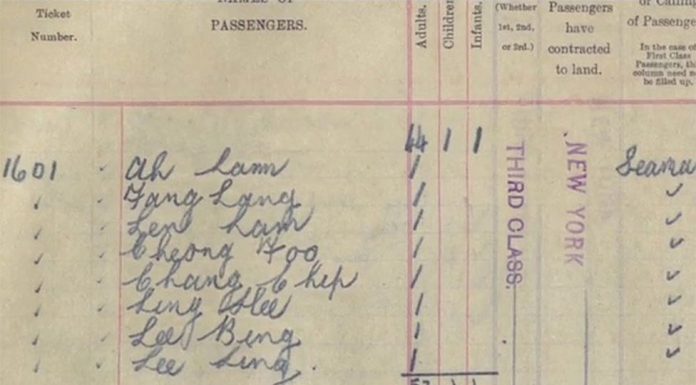 Ticket
Number.
NAMES OF
PASSENGERS.
Adults.
Children
Infants.
(Whether
1st, 2nd,
or 3rd.)
Passengers
have
contracted
to land.
of Passenge
In the case of
First Class
Passengers, this
column need n
be filled up.
44 1 1
THIRD CLASS.
NEW YORK
1601 Ah Lam 1 Seama
Fang Lang 1
Len Lam 1
Cheong Foo 1
Chang Chip 1
Ling Hee 1
Lee Bing 1
Lee Ling 1